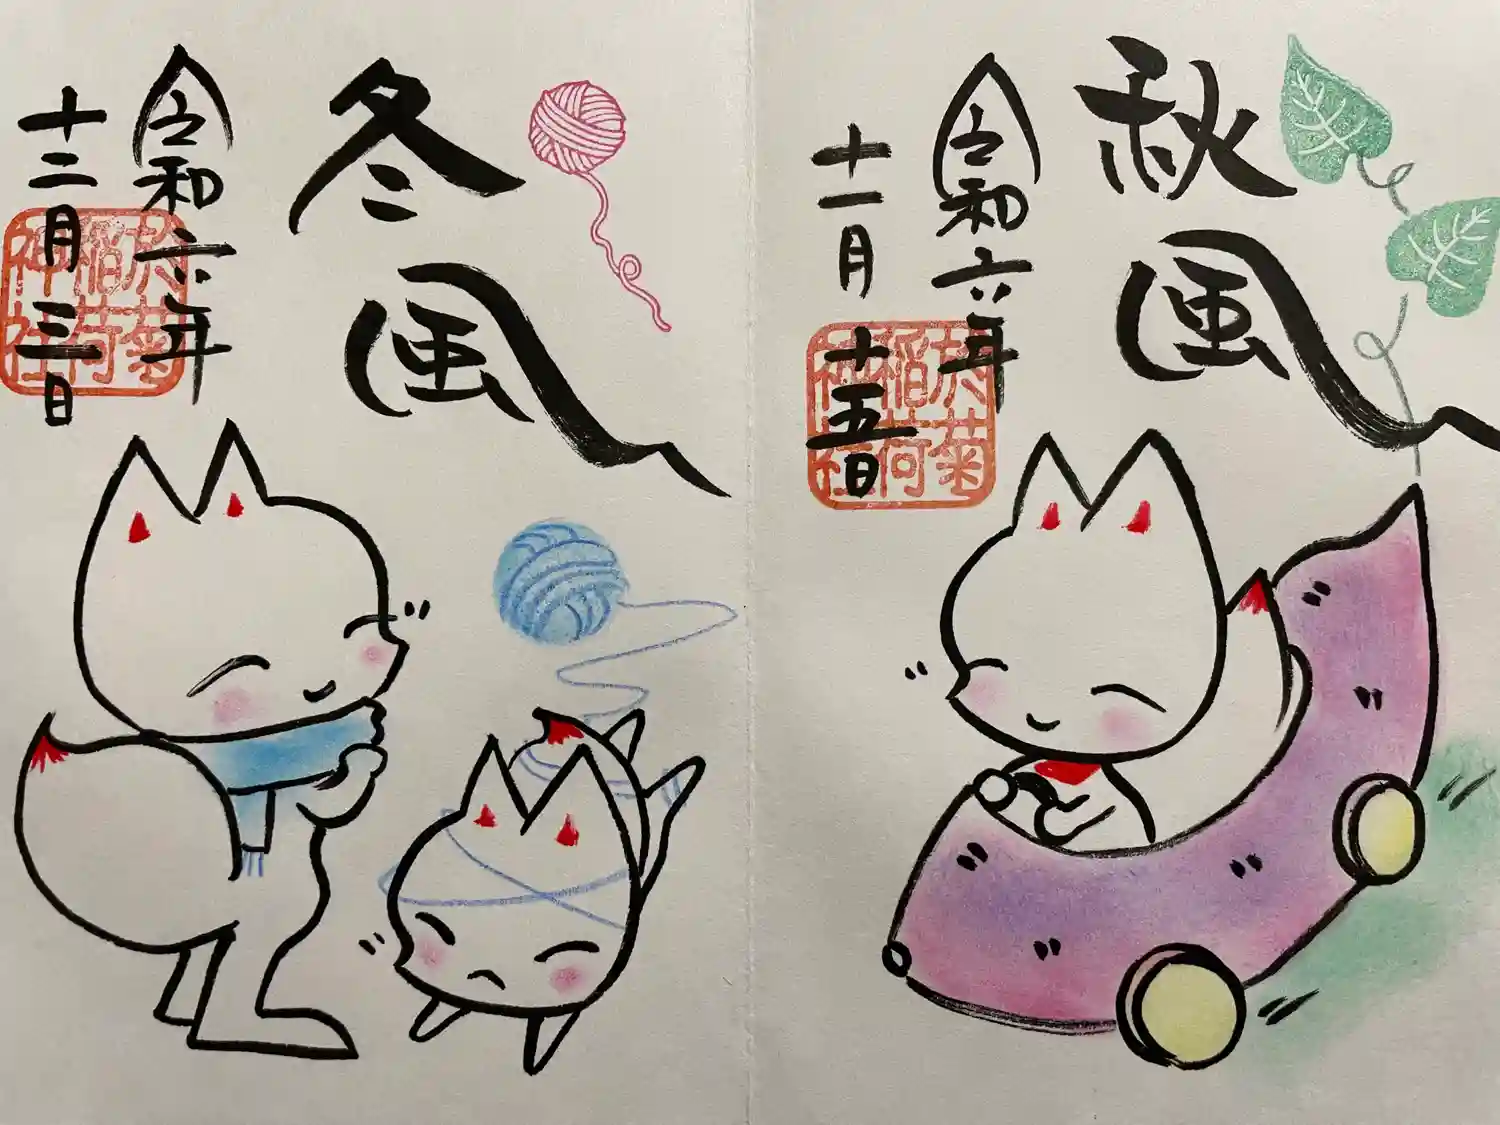 秋風
令和六年
十一月十五日
於菊
稲荷
神社
冬風
令和六年
十二月三日
於菊
稲荷
神社